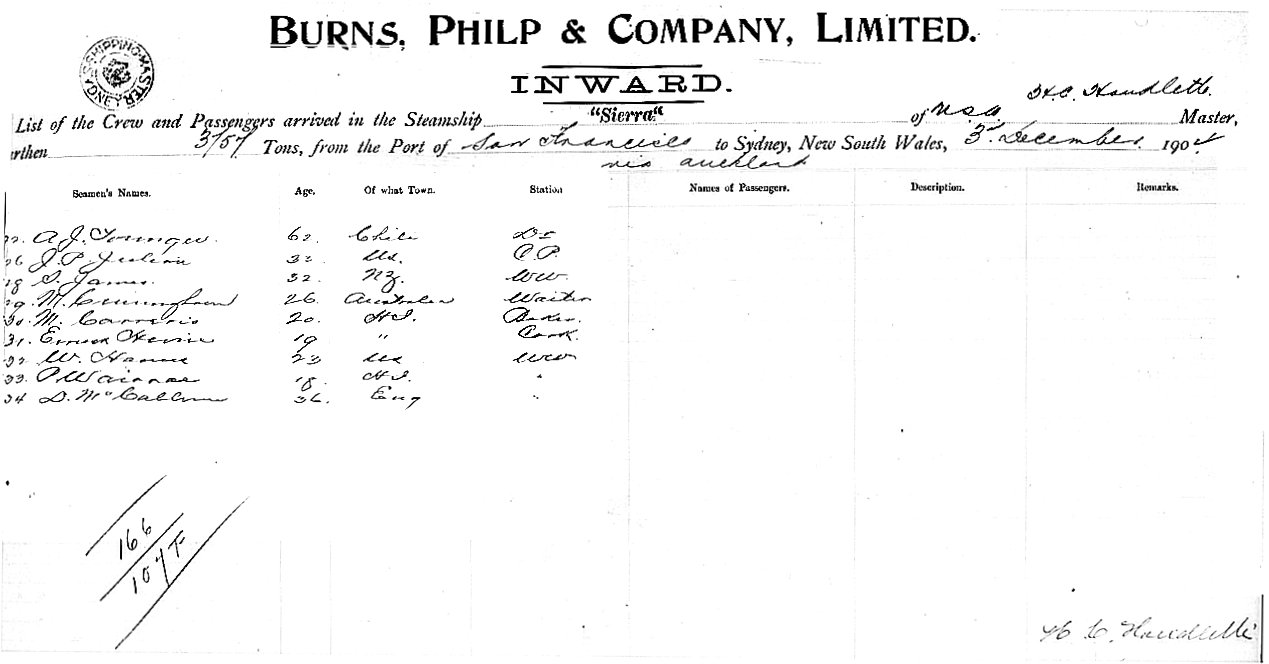 BURNS, PHILP & COMPANY, LIMITED.
SHIPPING MASTER SYDNEY
INWARD.
H.C. Houdlette
List of the Crew and Passengers arrived in the Steamship "Sierra" of USA Master,
rthen 3/57 Tons, from the Port of San Francisco to Sydney, New South Wales, 3rd December 1904
via Auckland
Seamen's Names. Age, Of what Town. Station Names of Passengers. Description. Remarks.
A. J. 62. Chili
26 J. P. 32 Us. C.P.
28 James. 32. NZ. WW.
29. M. 26. Australia Waiter
30. M. 20. H I. Baker.
31. 19 " Cook.
32 W. 23 Us WW
33. P 18. H I. "
34 D. 36. Eng "
166
107 F
H C. Houdlette